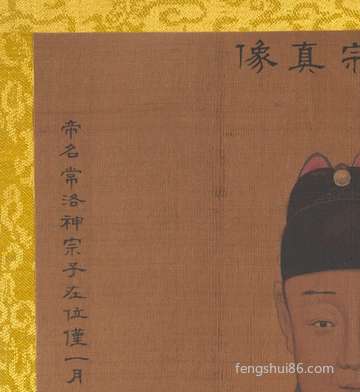 宗真像
帝名常洛神宗子在位僅一月
fengshui86.com